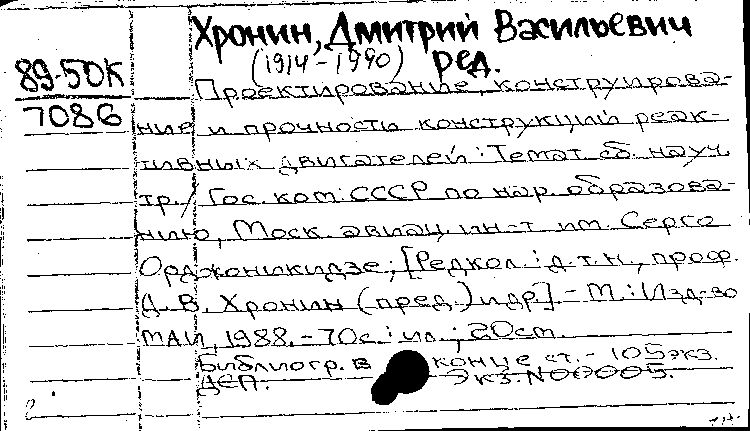 Хронин, Дмитрий Васильевич
(1914-1990) ред.
89-50К
7086
Проектирование, конструирова-
ние и прочность конструкций реак-
тивных двигателей: Темат. сб. науч.
тр. / Гос. ком. СССР по нар. образова-
нию, Моск. авиац. ин-т им. Серго
Орджоникидзе; [Редкол.: д.т.н., проф.
Д. В. Хронин (пред.) и др]. - М.: Изд-во
МАИ, 1988. - 70с.: ил.; 20см.
Библиогр. в конце ст. - 105 экз.
ДЕП: Экз. N00005.